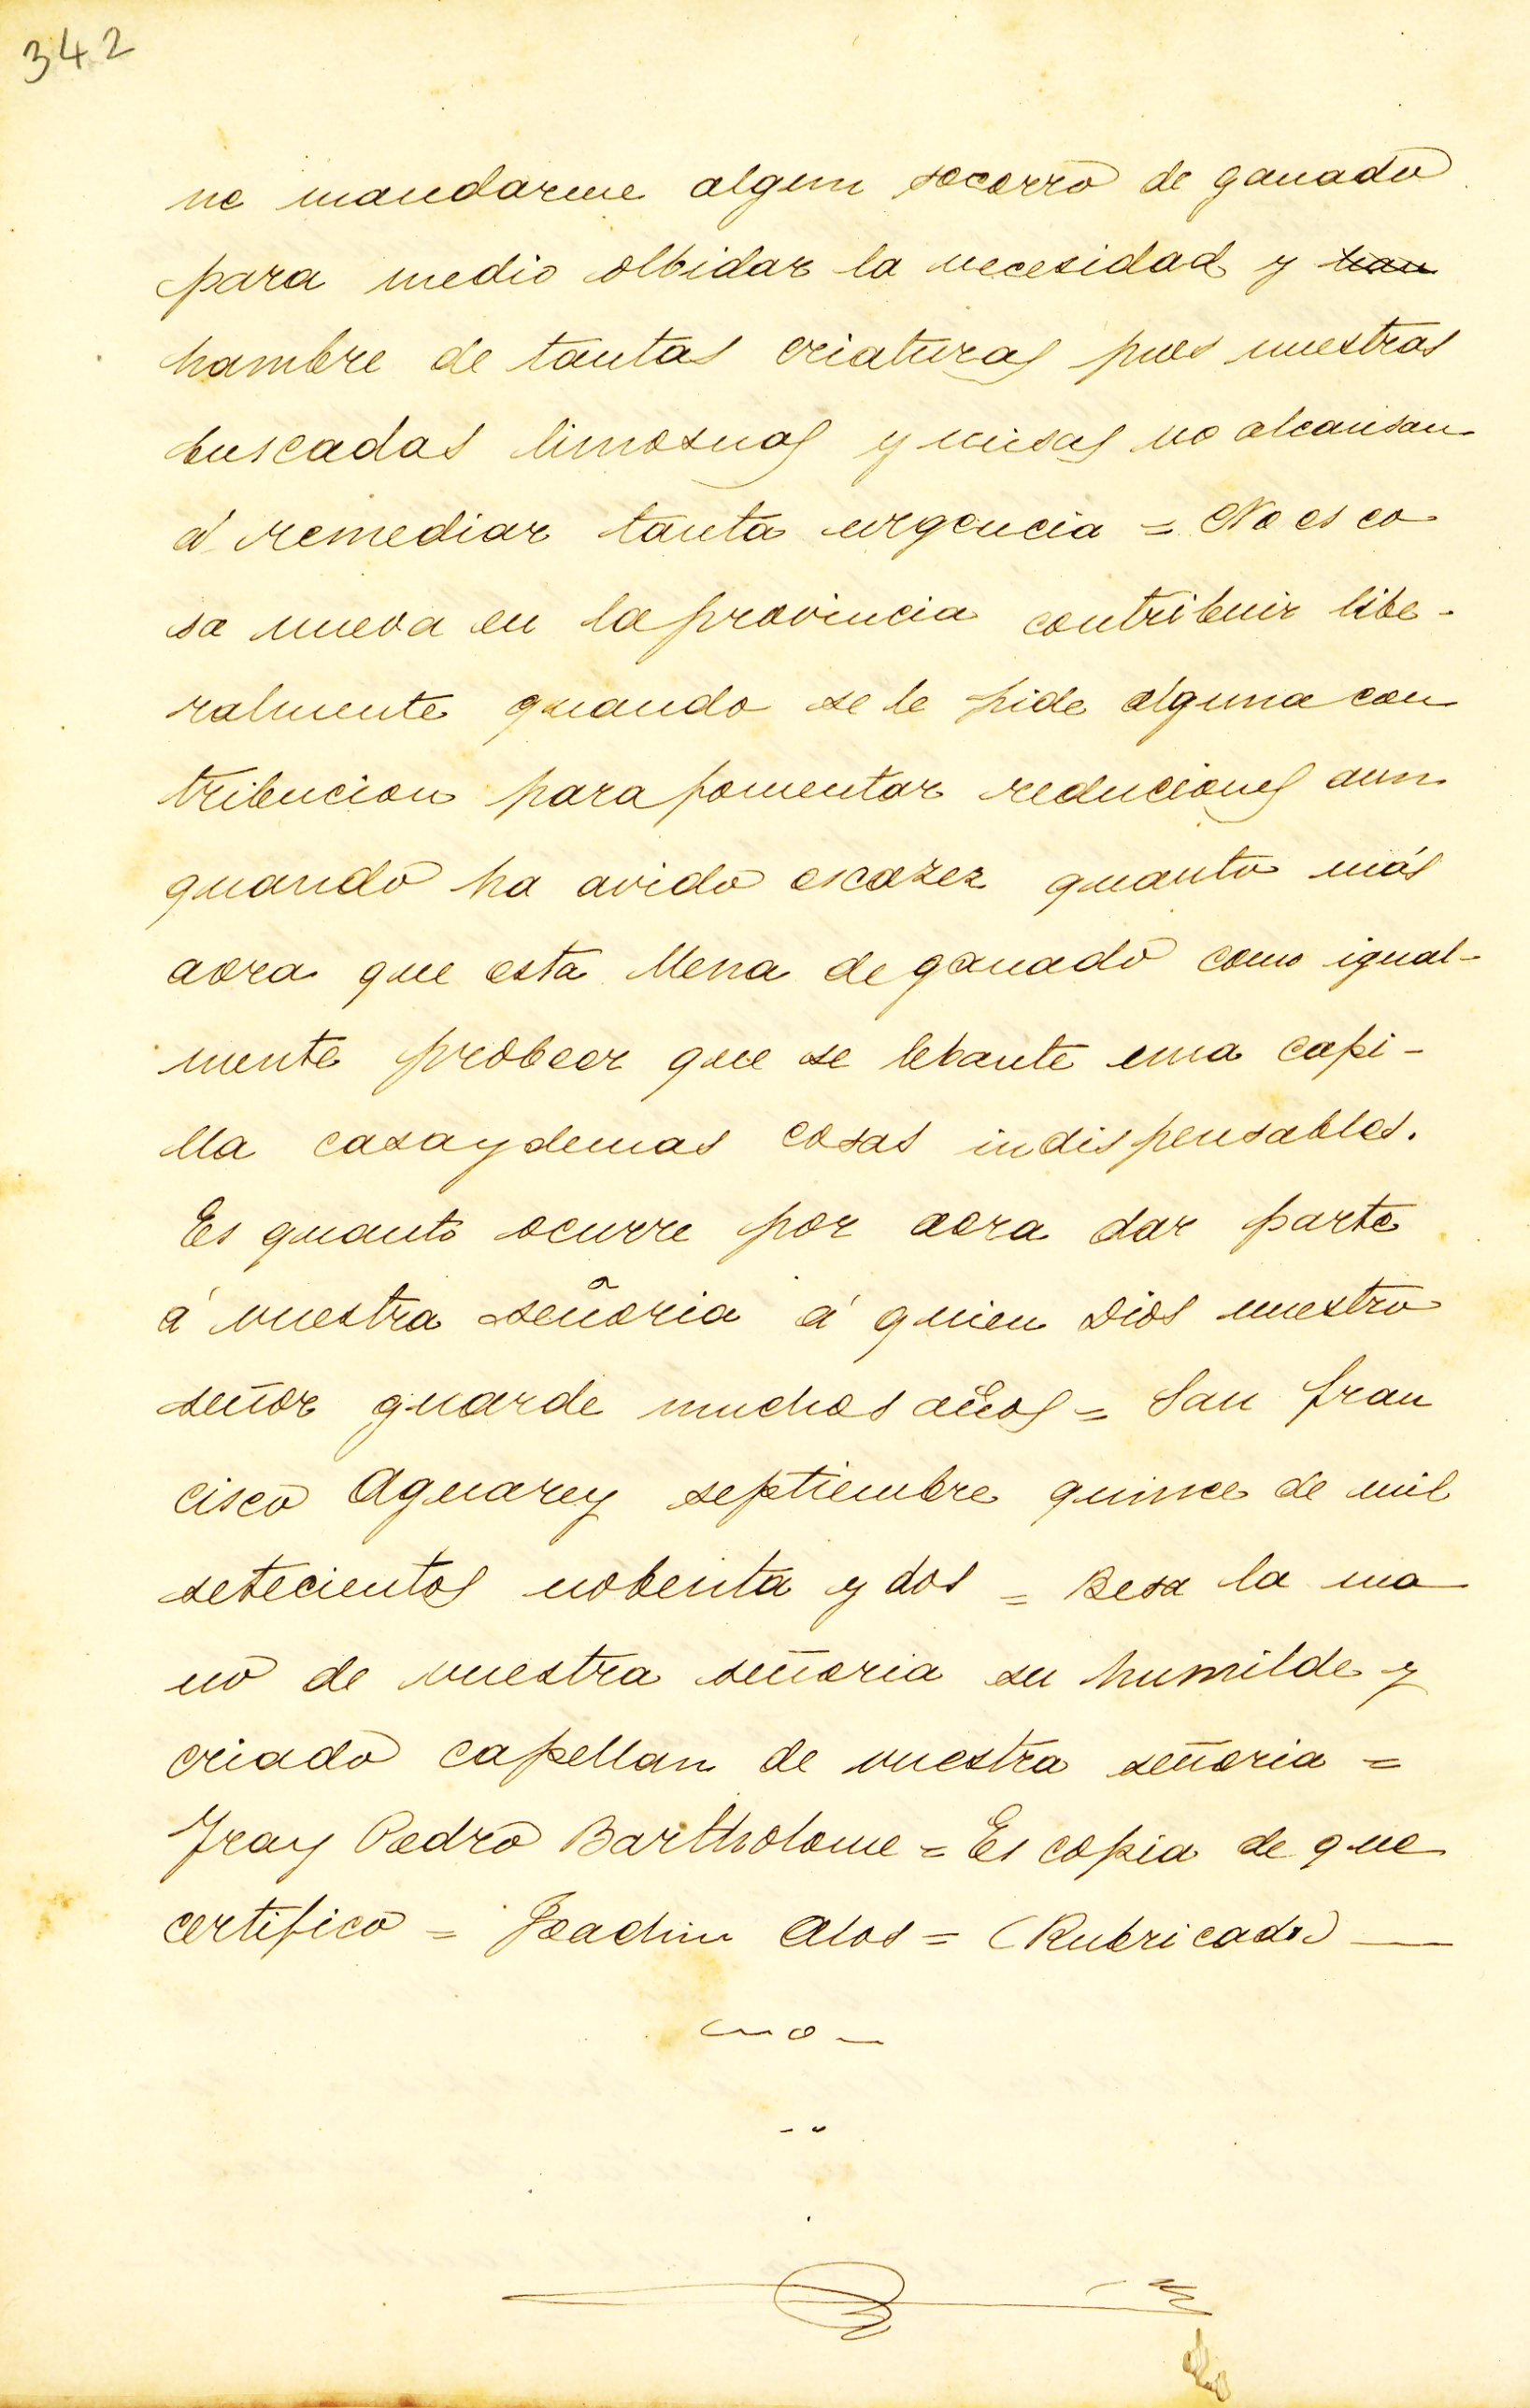 342
ne mandarme algun socorro de ganado
para medio olbidar la necesidad y
hambre de tantas criaturas pues nuestras
buscadas limosnas y misas no alcansan
á remediar tanta urgencia = No es co
sa nueva en la provincia contribuir libe-
ralmente quando se le pide alguna con
tribucion para fomentar reduciones aun
quando ha avido escazez quanto más
aora que esta llena de ganado como igual-
mente probeer que se lebante una capi-
lla casa y demas cosas indispensables.
Es quanto ocurre por aora dar parte
á vuestra señoria á quien Dios nuestro
señor guarde muchos años = San fran
cisco Aguarey septiembre quince de mil
setecientos nobenta y dos = Besa la ma
no de vuestra señoria su humilde y
criado capellan de vuestra señoria =
Fray Pedro Bartholome = Es copia de que
certifico = Joachin Alos = (Rubricado)